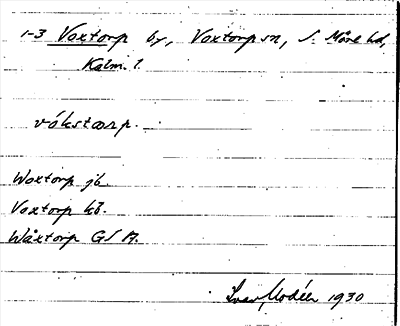 1-3 Voxtorp by, Voxtorp sn, S. Möre hd,
Kalm. l.
vókstωrp.
Woxtorp jb.
Voxtorp kb.
Wåxtorp GSA.
Ivar Modéer 1930